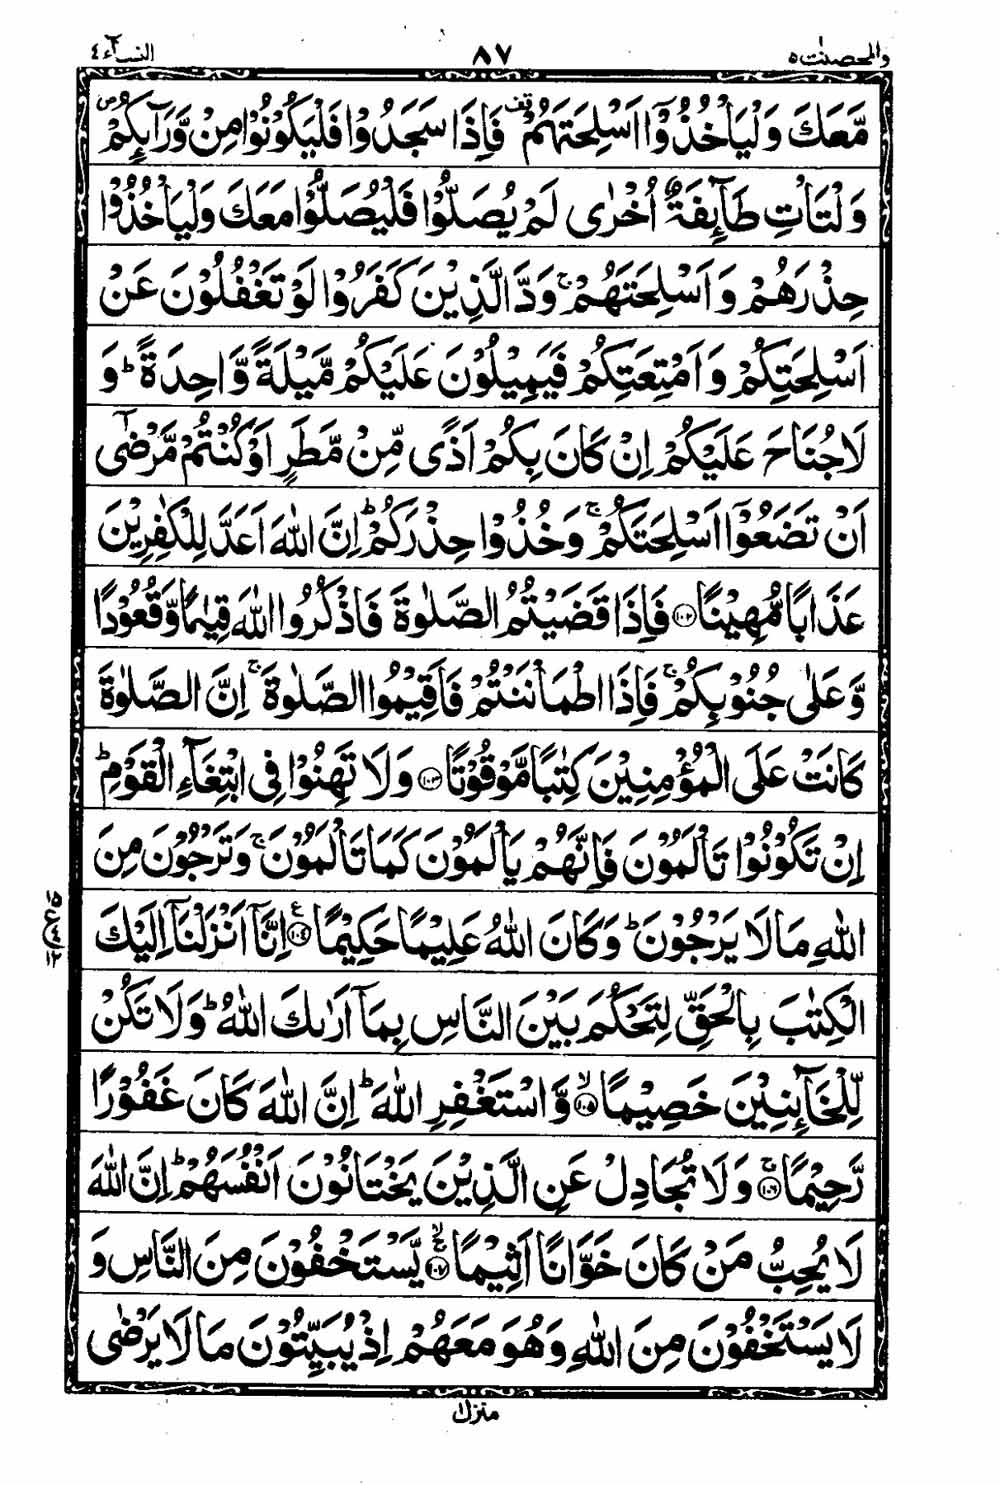 والمحصنٰت ٥ ٨٧ النسآء ٤
مَّعَكَ وَلْيَاْخُذُوْٓا اَسْلِحَتَهُمْ قف فَاِذَا سَجَدُوْا فَلْيَكُوْنُوْا مِنْ وَّرَآىِٕكُمْ ص
وَلْتَاْتِ طَآىِٕفَةٌ اُخْرٰى لَمْ يُصَلُّوْا فَلْيُصَلُّوْا مَعَكَ وَلْيَاْخُذُوْا
حِذْرَهُمْ وَاَسْلِحَتَهُمْ ۚ وَدَّ الَّذِيْنَ كَفَرُوْا لَوْ تَغْفُلُوْنَ عَنْ
اَسْلِحَتِكُمْ وَاَمْتِعَتِكُمْ فَيَمِيْلُوْنَ عَلَيْكُمْ مَّيْلَةً وَّاحِدَةً ؕ وَ
لَا جُنَاحَ عَلَيْكُمْ اِنْ كَانَ بِكُمْ اَذًى مِّنْ مَّطَرٍ اَوْ كُنْتُمْ مَّرْضٰٓى
اَنْ تَضَعُوْٓا اَسْلِحَتَكُمْ ۚ وَخُذُوْا حِذْرَكُمْ ؕ اِنَّ اللّٰهَ اَعَدَّ لِلْكٰفِرِيْنَ
عَذَابًا مُّهِيْنًا ۝١٠٢ فَاِذَا قَضَيْتُمُ الصَّلٰوةَ فَاذْكُرُوا اللّٰهَ قِيٰمًا وَّقُعُوْدًا
وَّعَلٰى جُنُوْبِكُمْ ۚ فَاِذَا اطْمَاْنَنْتُمْ فَاَقِيْمُوا الصَّلٰوةَ ۚ اِنَّ الصَّلٰوةَ
كَانَتْ عَلَى الْمُؤْمِنِيْنَ كِتٰبًا مَّوْقُوْتًا ۝١٠٣ وَلَا تَهِنُوْا فِى ابْتِغَآءِ الْقَوْمِ ؕ
اِنْ تَكُوْنُوْا تَاْلَمُوْنَ فَاِنَّهُمْ يَاْلَمُوْنَ كَمَا تَاْلَمُوْنَ ۚ وَتَرْجُوْنَ مِنَ
اللّٰهِ مَا لَا يَرْجُوْنَ ؕ وَكَانَ اللّٰهُ عَلِيْمًا حَكِيْمًا ۝١٠٤ ع اِنَّآ اَنْزَلْنَآ اِلَيْكَ
الْكِتٰبَ بِالْحَقِّ لِتَحْكُمَ بَيْنَ النَّاسِ بِمَآ اَرٰىكَ اللّٰهُ ؕ وَلَا تَكُنْ
لِّلْخَآىِٕنِيْنَ خَصِيْمًا ۝١٠٥ ۙ وَّاسْتَغْفِرِ اللّٰهَ ؕ اِنَّ اللّٰهَ كَانَ غَفُوْرًا
رَّحِيْمًا ۝١٠٦ ۚ وَلَا تُجَادِلْ عَنِ الَّذِيْنَ يَخْتَانُوْنَ اَنْفُسَهُمْ ؕ اِنَّ اللّٰهَ
لَا يُحِبُّ مَنْ كَانَ خَوَّانًا اَثِيْمًا ۝١٠٧ ۚۙ يَّسْتَخْفُوْنَ مِنَ النَّاسِ وَ
لَا يَسْتَخْفُوْنَ مِنَ اللّٰهِ وَهُوَ مَعَهُمْ اِذْ يُبَيِّتُوْنَ مَا لَا يَرْضٰى
منزل ١